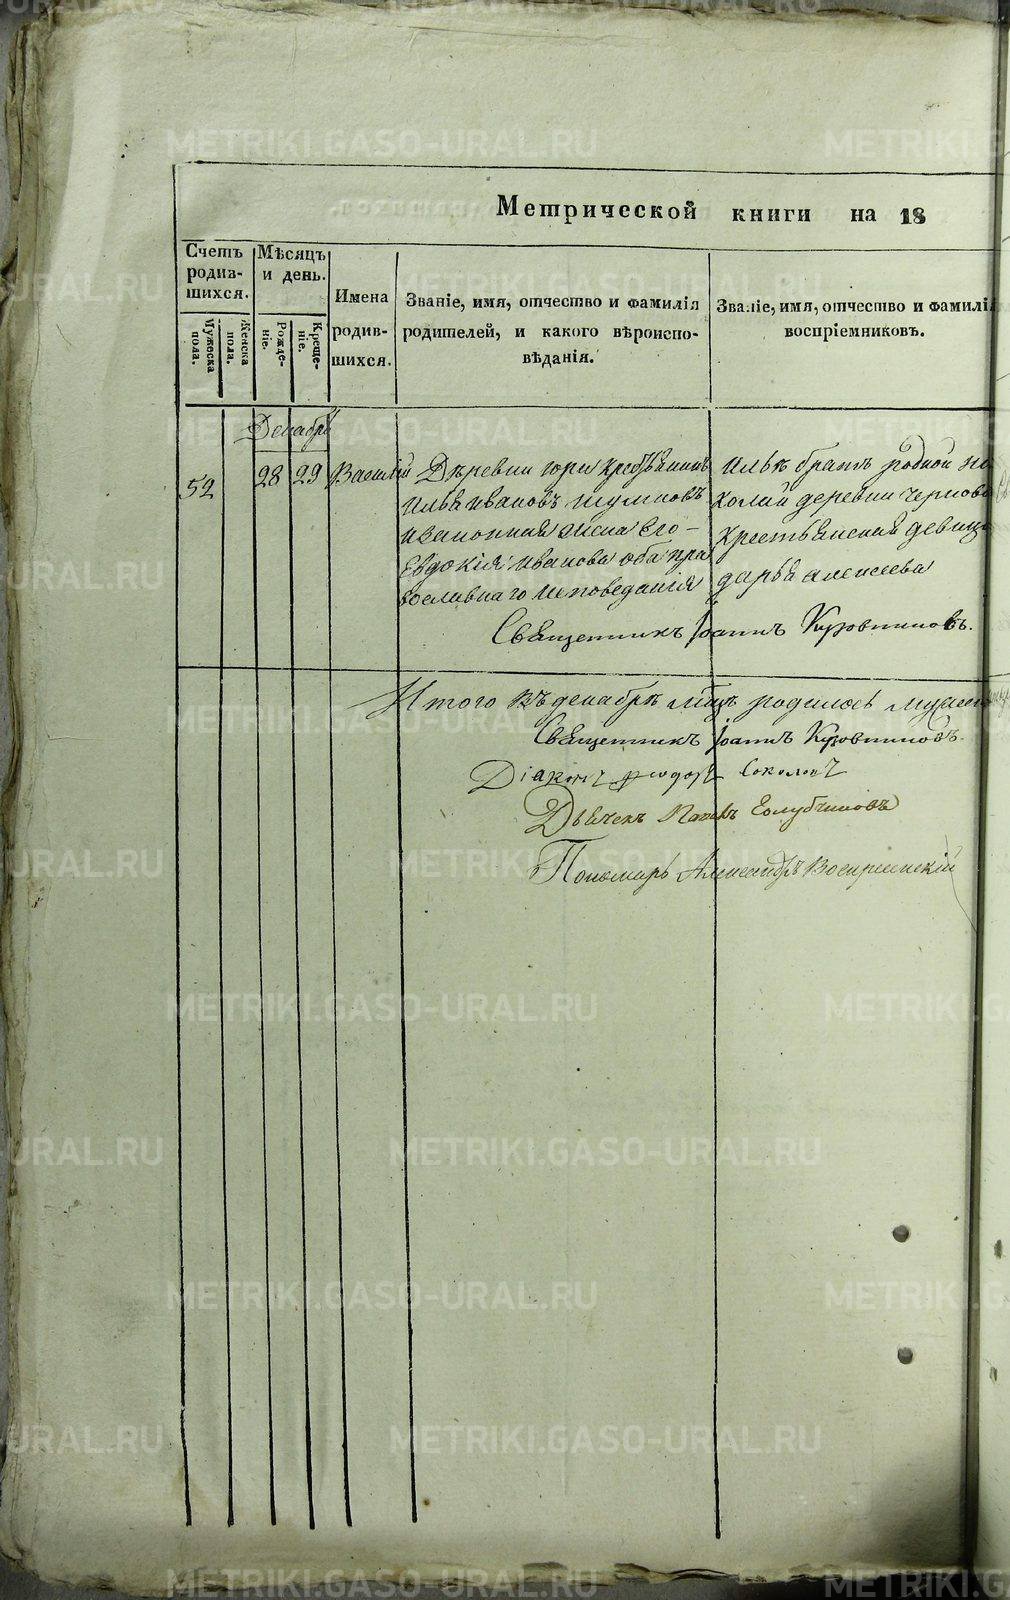 METRIKI.GASO-URAL.RU
Метрической книги на 18
Счетъ родив-шихся.
Мужеска пола.
Женска пола.
Мѣсяцъ и день.
Рожде-ніе.
Креще-ніе.
Имена родив-шихся.
Званіе, имя, отчество и фамилія
родителей, и какого вѣроиспо-
вѣданія.
Званіе, имя, отчество и фамилія
воспріемниковъ.
Декабрь
52
28
29
Василій
Деревни горы
Илья Ивановъ
законная жена его
Евдокія Иванова оба пра
вославнаго исповеданія
Ильи братъ родной Ни
колай деревни
крестьянская девица
дарья алексеева
Священникъ Іоаннъ
Итого въ декабрѣ мцѣ родилось мужеск
Священникъ Іоаннъ
Діаконъ Феодоръ Соколовъ
Дьячекъ Голубчиковъ
Пономарь Александръ Воскресенскій